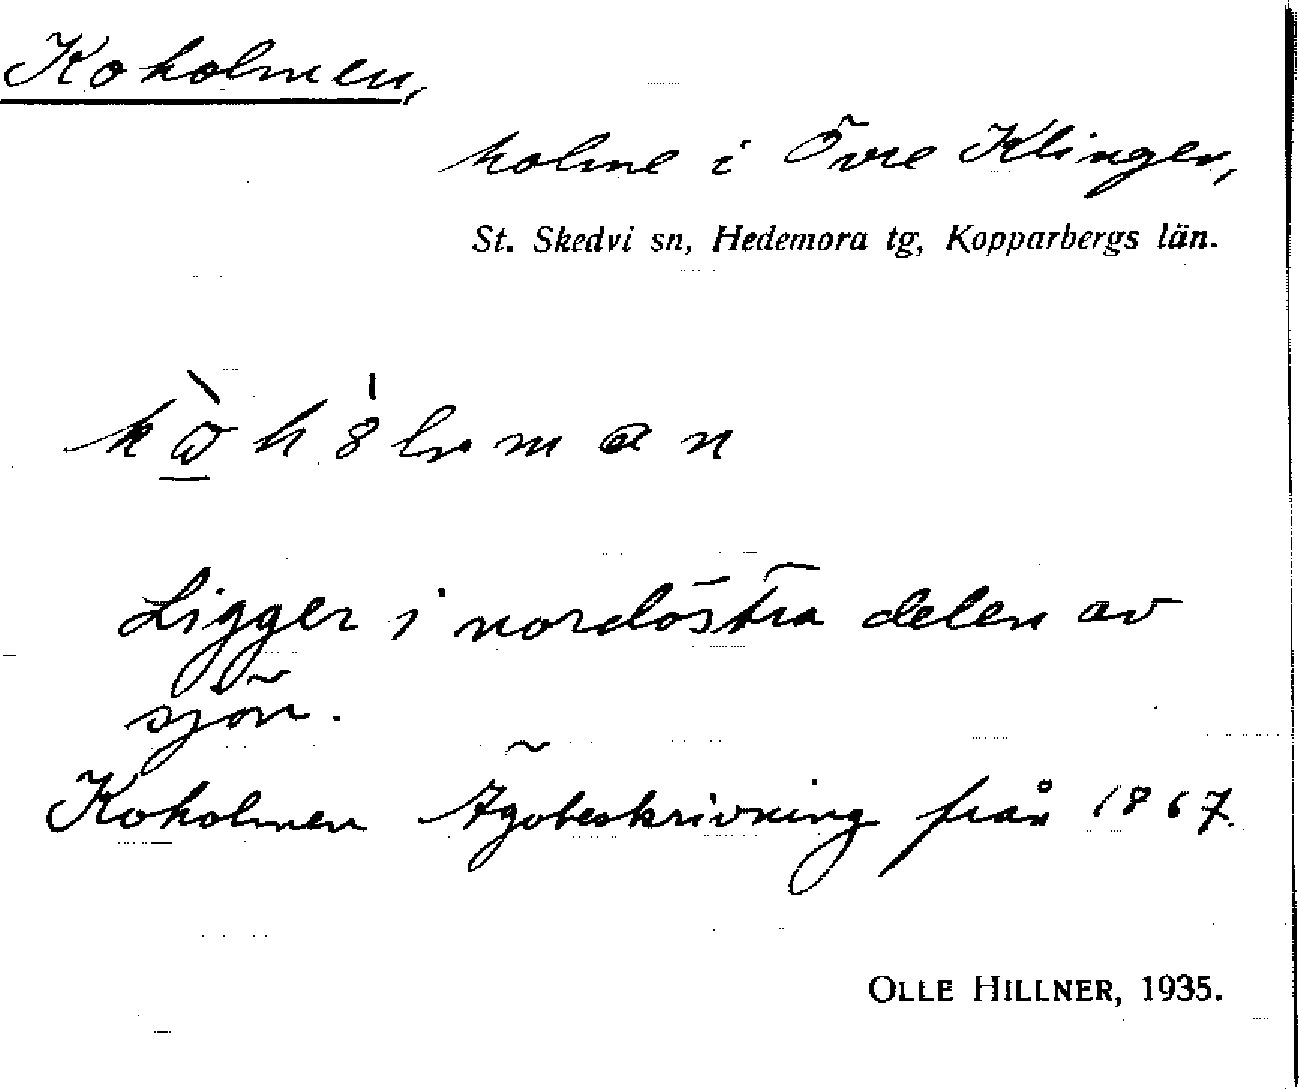 Koholmen,
holme i Övre Klingen,
St. Skedvi sn, Hedemora tg, Kopparbergs län.
Ligger i nordöstra delen av
sjön.
Koholmen Ägobeskrivning från 1867.
OLLE HILLNER, 1935.